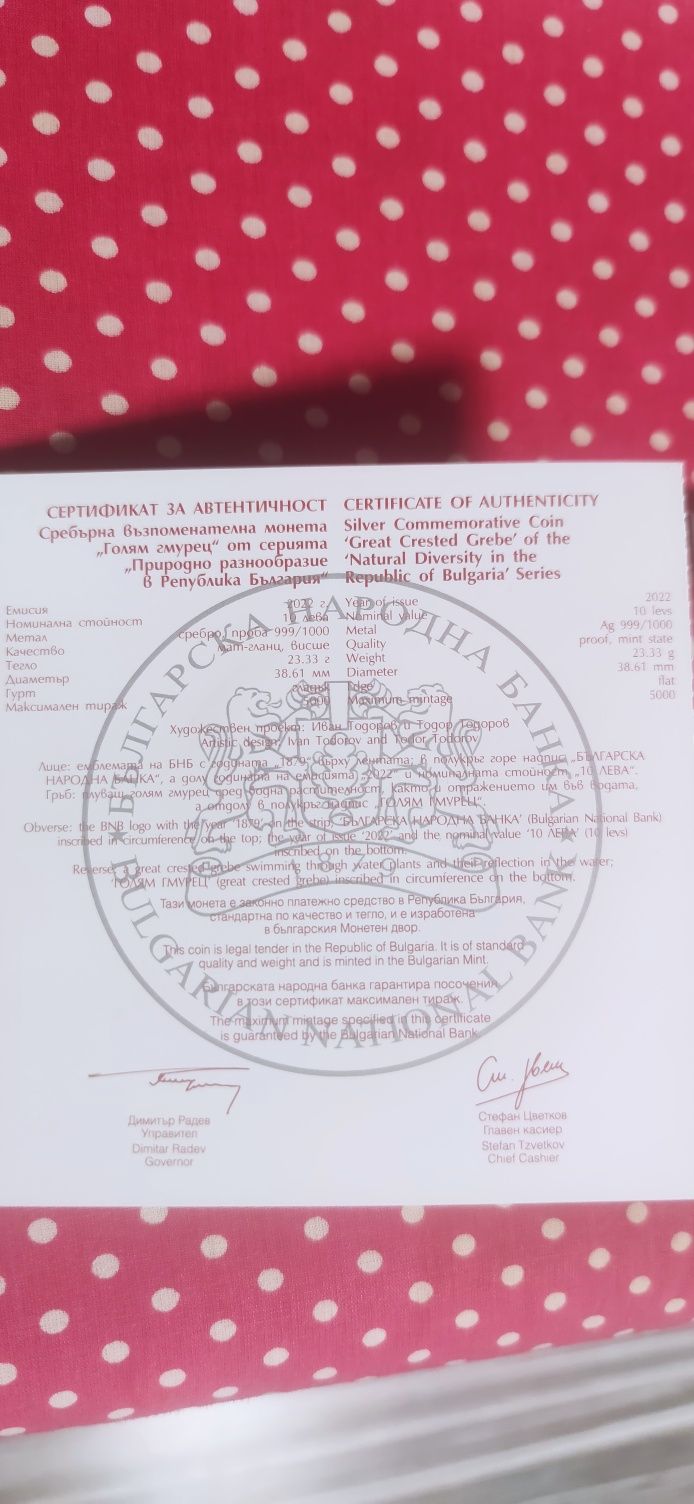 СЕРТИФИКАТ ЗА АВТЕНТИЧНОСТ
Сребърна възпоменателна монета
„Голям гмурец“ от серията
„Природно разнообразие
в Република България“
CERTIFICATE OF AUTHENTICITY
Silver Commemorative Coin
‘Great Crested Grebe’ of the
‘Natural Diversity in the
Republic of Bulgaria’ Series
Емисия 2022 г.
Номинална стойност 10 лева
Метал сребро, проба 999/1000
Качество мат-гланц, висше
Тегло 23.33 г
Диаметър 38.61 мм
Гурт гладък
Максимален тираж 5000
Year of issue 2022
Nominal value 10 levs
Metal Ag 999/1000
Quality proof, mint state
Weight 23.33 g
Diameter 38.61 mm
Edge flat
Maximum mintage 5000
Художествен проект: Иван Тодоров и Тодор Тодоров
Artistic design: Ivan Todorov and Todor Todorov
Лице: емблемата на БНБ с годината „1879“ върху лентата; в полукръг горе надпис „БЪЛГАРСКА
НАРОДНА БАНКА“, а долу годината на емисията „2022“ и номиналната стойност „10 ЛЕВА“.
Гръб: плуващ голям гмурец сред водна растителност, както и отражението им във водата,
а отдолу в полукръг надпис „ГОЛЯМ ГМУРЕЦ“.
Obverse: the BNB logo with the year ‘1879’ on the strip; ‘БЪЛГАРСКА НАРОДНА БАНКА’ (Bulgarian National Bank)
inscribed in circumference on the top; the year of issue ‘2022’ and the nominal value ‘10 ЛЕВА’ (10 levs)
inscribed on the bottom.
Reverse: a great crested grebe swimming through water plants and their reflection in the water;
‘ГОЛЯМ ГМУРЕЦ’ (great crested grebe) inscribed in circumference on the bottom.
Тази монета е законно платежно средство в Република България,
стандартна по качество и тегло, и е изработена
в българския Монетен двор.
This coin is legal tender in the Republic of Bulgaria. It is of standard
quality and weight and is minted in the Bulgarian Mint.
Българската народна банка гарантира посочения
в този сертификат максимален тираж.
The maximum mintage specified in this certificate
is guaranteed by the Bulgarian National Bank.
БЪЛГАРСКА НАРОДНА БАНКА
BULGARIAN NATIONAL BANK
Димитър Радев
Управител
Dimitar Radev
Governor
Стефан Цветков
Главен касиер
Stefan Tzvetkov
Chief Cashier